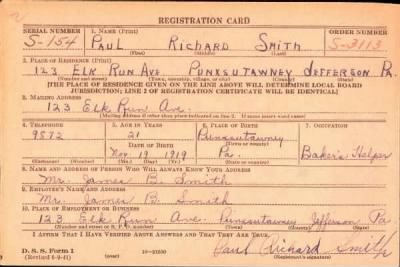 REGISTRATION CARD
SERIAL NUMBER 1. NAME (Print) ORDER NUMBER
S-154 Paul Richard Smith S-3113
(First) (Middle) (Last)
2. PLACE OF RESIDENCE (Print)
123 Elk Run Ave Punxsutawney Jefferson Pa.
(Number and street) (Town, township, village, or city) (County) (State)
[THE PLACE OF RESIDENCE GIVEN ON THE LINE ABOVE WILL DETERMINE LOCAL BOARD
JURISDICTION; LINE 2 OF REGISTRATION CERTIFICATE WILL BE IDENTICAL]
3. MAILING ADDRESS
123 Elk Run Ave.
[Mailing address if other than place indicated on line 2. If same insert word same]
4. TELEPHONE 5. AGE IN YEARS 6. PLACE OF BIRTH 7. OCCUPATION
9872 21 Punxsutawney
DATE OF BIRTH (Town or county)
Nov 19 1919 Pa. Baker's Helper
(Exchange) (Number) (Mo.) (Day) (Yr.) (State or country)
8. NAME AND ADDRESS OF PERSON WHO WILL ALWAYS KNOW YOUR ADDRESS
Mr. James B. Smith
9. EMPLOYER'S NAME AND ADDRESS
Mr. James B. Smith
10. PLACE OF EMPLOYMENT OR BUSINESS
123 Elk Run Ave. Punxsutawney Jefferson Pa
(Number and street or R. F. D. number) (Town) (County) (State)
I AFFIRM THAT I HAVE VERIFIED ABOVE ANSWERS AND THAT THEY ARE TRUE.
D. S. S. Form 1 Paul Richard Smith
(Revised 6-9-41) (Registrant's signature)